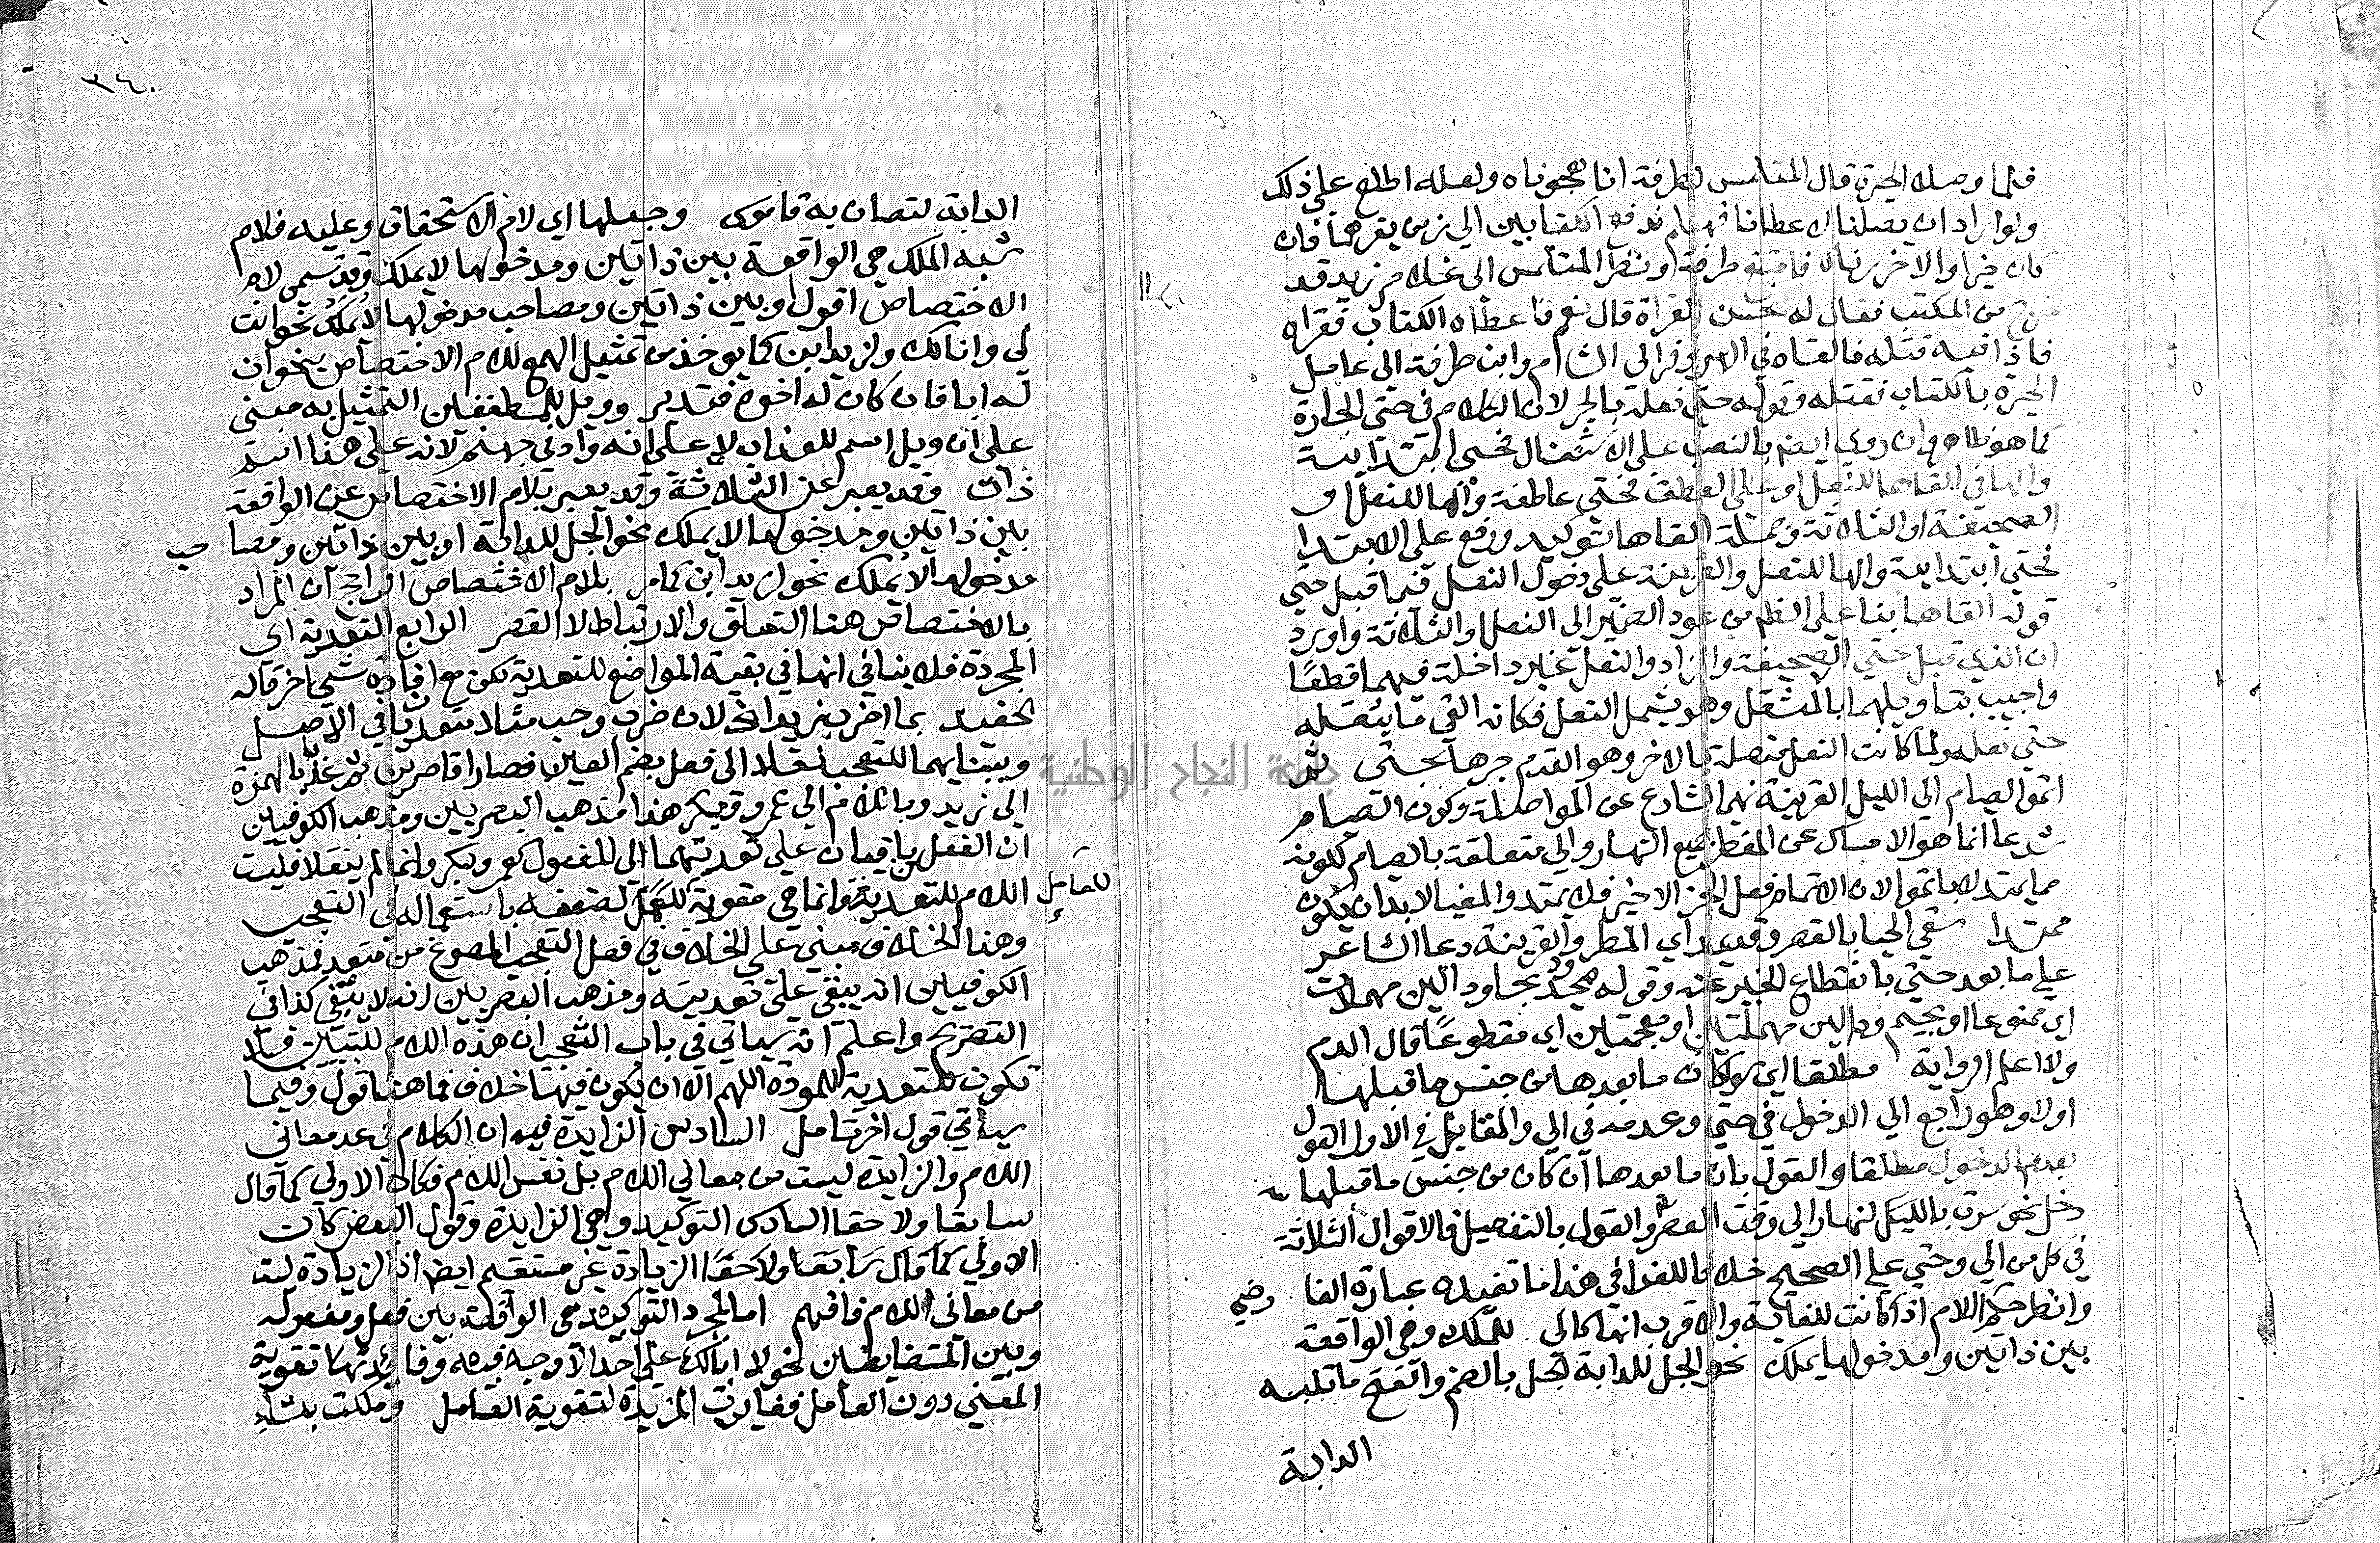 فلما وصلا الحيرة قال المتلمس لطرفة انا هجوناه ولعله اطلع على ذلك
ولو اراد ان يصلنا لاعطانا فهلم ندفع الكتابين الي من يقرهما فان
كان خيرا والا خررناه فامتنع طرفة ونظر المتلمس الى غلام قد
خرج من المكتب فقال له اتحسن القراة قال نعم فاعطاه الكتاب فقراه
فاذا فيه قتله فالقاه في النهر وفر الى الشام واتى طرفة الى عامل
الحيرة بالكتاب فقتله وقوله حتى نعله بالجر لان الكلام في حتى الجارة
كما هو ظاهر وان روي ايضا بالنصب على الاشتغال فحتى ابتدايية
والها في القاها للنعل او على العطف فحتى عاطفة والها للنعل او
الصحيفة او الثلاثة وجملة القاها توكيد ورفع على الابتدا
فحتى ابتدايية والها للنعل والقرينة على دخول النعل فيما قبل حتى
قوله القاها بنا على الظاهر من عود الضمير الى النعل او الثلاثة واورد
ان الذي قبل حتى الصحيفة والزاد والنعل غير داخلة فيهما قطعًا
واجيب بتاويلهما بالمثقل وهو يشمل النعل فكانه القى ما يثقله
حتى نعله ولما كانت النعل متصلة بالاخر وهو القدم جرها بحتى ثم
اتموا الصيام الى الليل القرينة نهي الشارع عن المواصلة وكون الصيام
شرعا انما هو الامساك عن المفطر جميع النهار والى متعلقة بالصيام لكونه
مما يمتد لا باتموا لان الاتمام فعل الجز الاخير فلا يمتد والمغيا لا بد ان يكون
ممتدا سقى الحيا بالقصر وقد يمد اي المطر والقرينة دعا الشاعر
على ما بعد حتى بانقطاع الخير عنه وقوله مجدود بحا ودالين مهملات
اي ممنوعا او بجيم ودالين مهملتين او معجمتين اي مقطوعًا قال الدم
ولا اعلم الرواية مطلقا اي سوا كان ما بعدها من جنس ما قبلها
اولا وهو راجع الي الدخول في حتى وعدمه في الي والمقابل في الاول القول
بعدم الدخول مطلقا والقول بان ما بعدها ان كان من جنس ما قبلها
دخل نحو سرت بالليل النهار الى وقت العصر والقول بالتفصيل فالاقوال الثلاثة
في كل من الي وحتى على الصحيح خلافا للقرافي هذا ما تفيده عبارة الفا رضي
وانظر حكم اللام اذا كانت للغاية والاقرب انها كالى للملك وهي الواقعة
بين ذاتين ومدخولها يملك نحو الجل للدابة الجل بالضم والفتح ما تلبسه
الدابة
٣٤٠
الدابة لتصان به قاموس وجعلها اي لام الاستحقاق وعليه فلام
شبه الملك هي الواقعة بين ذاتين ومدخولها لا يملك وقد تسمى لام
الاختصاص اقول او بين ذاتين ومصاحب مدخولها لا يملك نحو انت
لي وانا لك ولزيد ابن كما يوخذ من تمثيل الهمع للام الاختصاص بنحو ان
له ابا فان كان له اخوة فتدبر وويل للمطففين التمثيل به مبنى
على ان ويل اسم للعذاب لا على انه واد في جهنم لانه على هذا اسم
ذات وقد يعبر عن الثلاثة وقد يعبر بلام الاختصاص عن الواقعة
بين ذاتين ومدخولها لا يملك نحو الجل للدابة او بين ذاتين ومصاحب
مدخولها لا يملك نحو لزيد ابن كما مر بلام الاختصاص الراجح ان المراد
بالاختصاص هنا التعلق والارتباط لا القصر الرابع التعدية اي
المجردة فلا ينافي انها في بقية المواضع للتعدية لكن مع افادة شي اخر قاله
الحفيد بما اضرب زيدا الخ لان ضرب وحب مثلا متعديا في الاصل
وببنايهما للتعجب نقلا الى فعل بضم العين فصارا قاصرين ثم عديا بالهمزة
الى زيد وباللام الي عمرو وبكر هذا مذهب البصريين ومذهب الكوفيين
ان الفعل ياقيان على تعديتهما الى المفعول كعمرو وبكر وانهما لم ينقلا فليست
اللام للتعدية وانما هي مقوية للعامل لضعفه باستعماله في التعجب
للعامل
وهذا الخلاف مبني على الخلاف في فعل التعجب المصوغ من متعد فمذهب
الكوفيين انه يبقى على تعديته ومذهب البصريين انه لا يبقى كذا في
التصريح واعلم انه سياتي في باب التعجب ان هذه اللام للتبيين فلا
تكون للتعدية للموده اللهم الا ان يكون فيها خلاف فما هنا قول وفيما
سياتي قول اخر تامل السادس الزايدة فيه ان الكلام في عد معاني
اللام والزايدة ليست من معاني اللام بل نفس اللام فكان الاولى كما قال
سابقا ولاحقا السادس التوكيد وهي الزايدة وقول البعض كان
الاولى كما قال سابقا ولاحقًا الزيادة غير مستقيم ايضا اذ الزيادة ليست
من معاني اللام فافهم اما لمجرد التوكيد هي الواقعة بين فعل ومفعوله
وبين المتضايفين نحو لا ابا لك على احد الاوجه فيه وفايدتها تقوية
المعنى دون العامل فغايرت المزيدة لتقوية العامل وملكت